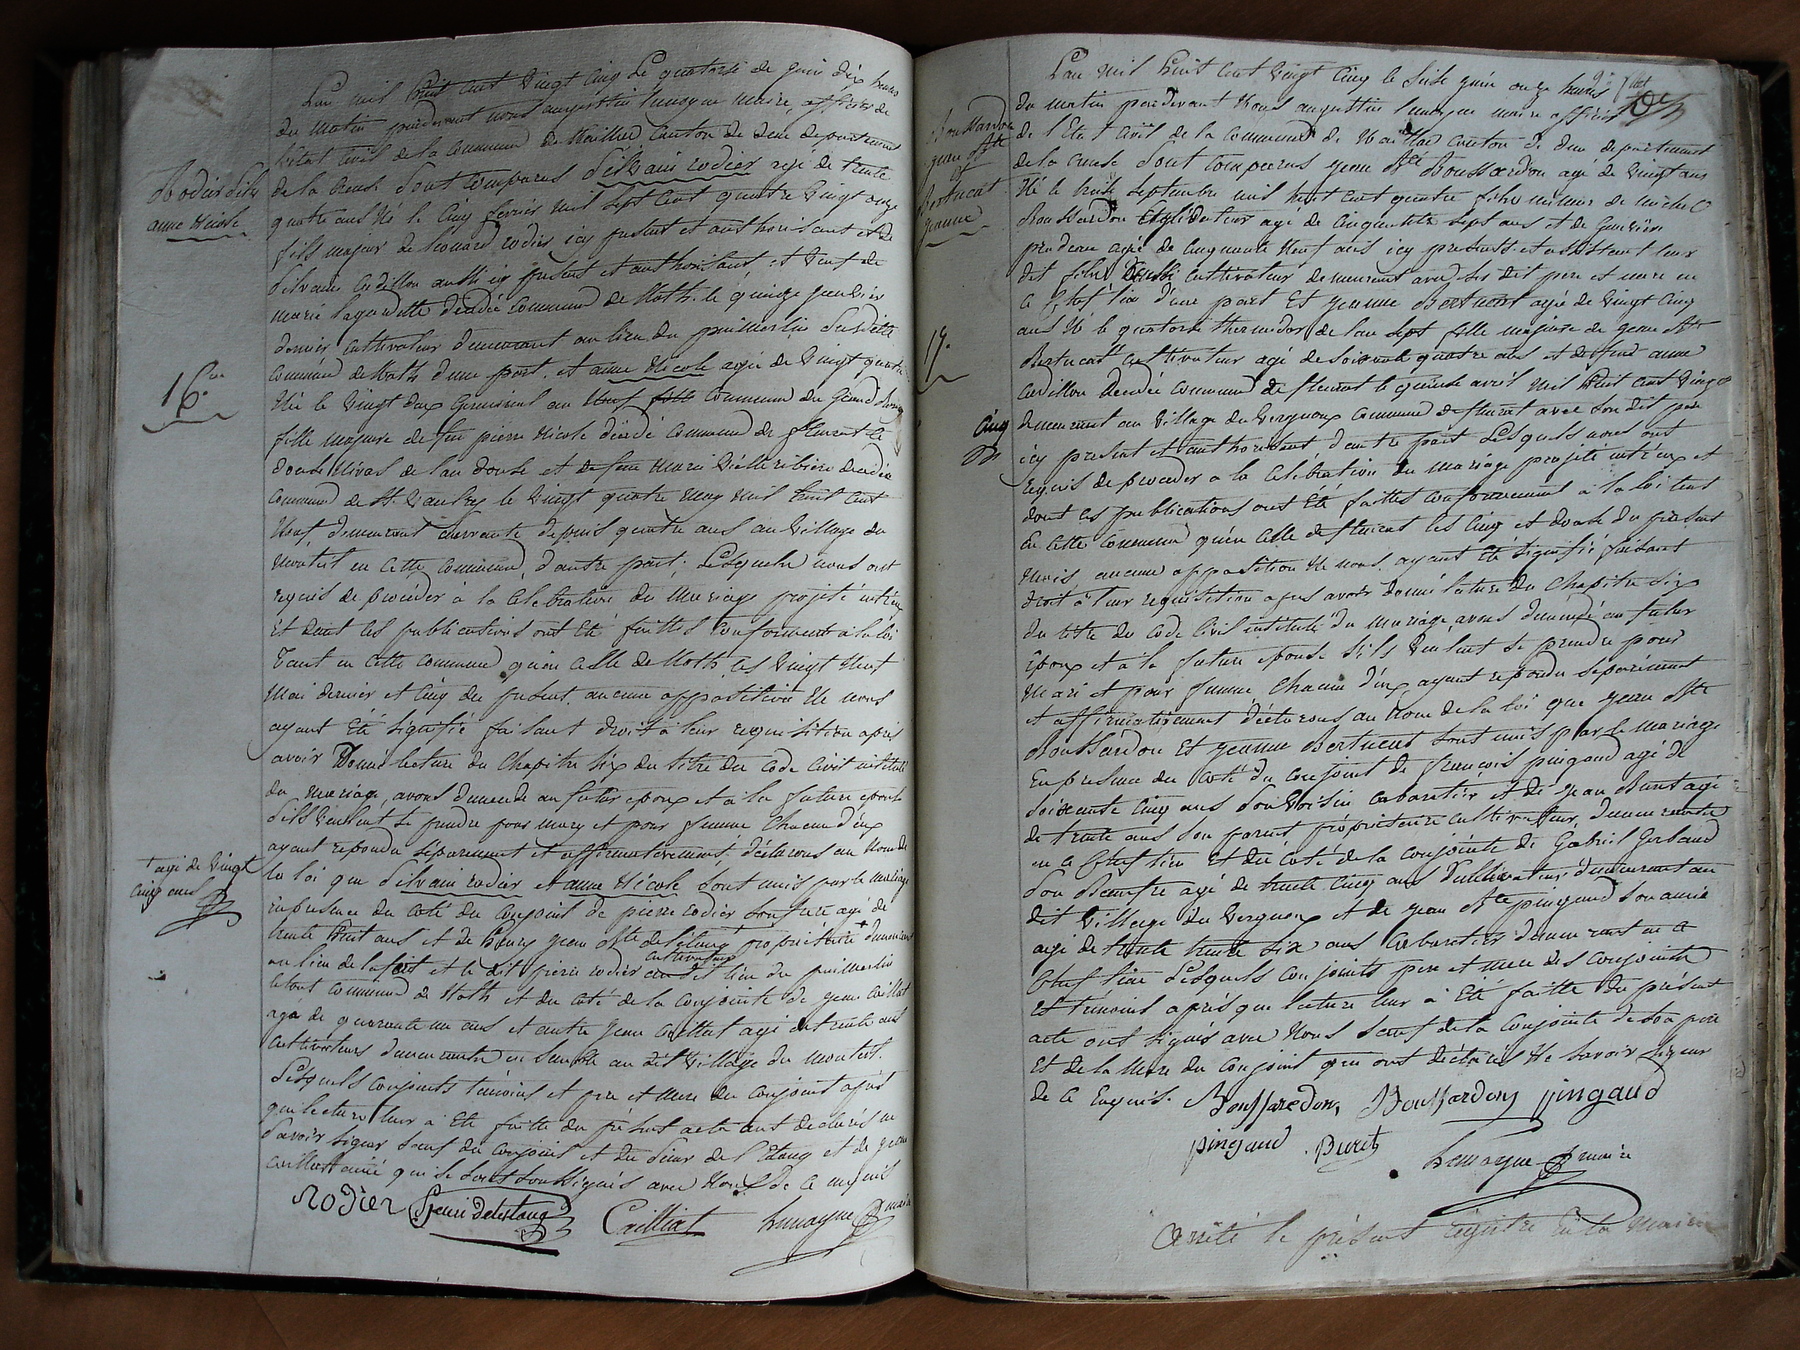 Rodier Silv
anne Nicole
16.e
+ agé de vingt
cinq ans
L'an mil huit cent vingt cinq le quatorse de juin dix heures
du matin pardevant nous augustin lumoyne maire, officier de
l'état civil de la commune de Maillac canton de dun departement
de la Creuse sont comparus Silvain rodier agé de trente
quatre ans né le cinq fevrier mil sept cent quatre vingt onze
fils majeur de leonard rodier icy present et authorisant et de
Silvaine cadillon aussi icy present et authorisant, et veuf de
marie decedée commune de Noth. le quinze janvier
dernier cultivateur demeurant au lieu du puimerlin susditte
commune de Noth d'une part. et anne Nicole agée de vingt quatre
Née le vingt deux Germinal an neuf commune du Grand Bourg
fille majeure de feu pierre Nicole décédé commune de fleurat le
douse nivos de l'an douse et de feue Marie ribiere decedée
commune de St. Vaulry le vingt quatre may mil huit cent
Neuf, demeurant servante depuis quatre ans au village du
montet en cette commune, d'autre part; Lesquels nous ont
requis de proceder à la celebration du Mariage projeté entr'eux
et dont les publications ont été faittes conforment à la loi
Tant en cette commune qu'en celle de Noth les vingt neuf
Mai dernier et cinq du present. aucune oppositition ne nous
ayant été signifié faisant droit à leur requisition après
avoir Donné lecture du chapitre six du titre du code civil intitulé
du mariage, avons demandé au futur epoux et à la future epouse
s'ils veulent se prendre pour mary et pour femme chacun d'eux
ayant repondu séparement et affirmativement. déclarons au nom de
la loi que Silvain rodier et anne Nicole sont unis par le mariage
en presence du coté du conjoint de pierre rodier son frere agé de
trente huit ans et de henry jean Bte delétang propriétaire + demeurant
cultivateur
au lieu de et le dit pierre rodier au dit lieu du puimerlin
letout commune de Noth et du coté de la conjointe de jean caillat
age de quarante un ans et autre jean caillat agé de trente ans
cultivateurs demeurants ensemble au dit village du montet.
Lesquels conjoints témoins et pere et mere du conjoint après
que lecture leur à été faitte du présent acte ont declarés ne
savoir signer sauf du conjoint et du sieur de l'Etang et de jean
caillat ainé qui se sont soussignés avec Nous de ce enquis
Rodier henri deletang Cailliat lumoyne maire
Boussardon
jean Bte
et
Bertucat
jeanne
17.e
cinq
L'an mil huit cent vingt cinq le seise juin onze heures
du matin pardevant Nous augustin lumoyne maire officier
de l'Etat civil de la commune de Maillac canton de dun departement
de la creuse sont comparus jean Bte Boussardon agé de vingt ans
Né le treise septembre mil huit cent quatre fils mineur de michel
Boussardon cultivateur agé de cinquante sept ans et de
agée de cinquante neuf ans icy presents et assistant leur
dit fils aussi cultivateur demeurant avec ses dit pere et mere en
ce chef lieu d'une part Et jeanne Bertucat agée de vingt cinq
ans Né le quatorse thermidor de l'an sept fille majeure de jean Bte
Bertucat cultivateur agé de soixante quatre ans et de feue anne
cadillon decedée commune de fleurat le quinse avril mil huit cent vingt
demeurant au village du vergnoux commune de fleurat avec son dit pere
icy present et authorisant d'autre part Lesquels nous ont
requis de proceder a la celebration du mariage projeté entr'eux et
dont les publications ont été faittes conformement à la loi tant
en cette commune qu'en celle de fleurat les cinq et douse du présent
mois aucune opposition ne nous ayant été signifié faisant
droit à leur requisition apres avoir donné lecture du chapitre six
du titre du code civil intitulé du mariage, avons demandé au futur
epoux et à la future epouse s'ils veulent se prendre pour
Mari et pour femme, chacun d'eux ayant repondu séparément
et affirmativement déclarons au nom de la loi que jean Bte
Boussardon Et jeanne Bertucat sont unis par le mariage
En présence du coté du conjoint de françois pingaud agé de
soixante cinq ans son voisin cabaretier et de jean Buret agé
de trente ans son parent propriétaire cultivateur, demeurants
en ce chef lieu Et du coté de la conjointe de Gabriel
son Beaufre agé de trente cinq ans cultivateur demeurant au
dit village du Vergnoux et de jean Bte pingaud son amie
agé de trente six ans cabaretier demeurant en ce
chef lieu Lesquels conjoints pere et mere des conjoints
et temoins aprésque lecture leur à été faitte du présent
acte ont signés avec Nous sauf de la conjointe de son pere
Et de la Mere du conjoint qui ont déclarés ne savoir signer
de ce enquis. Boussaredon, Boussardon pingaud
pingaud Buret lumoyne maire
Arrêté le présent registre en la Mairie